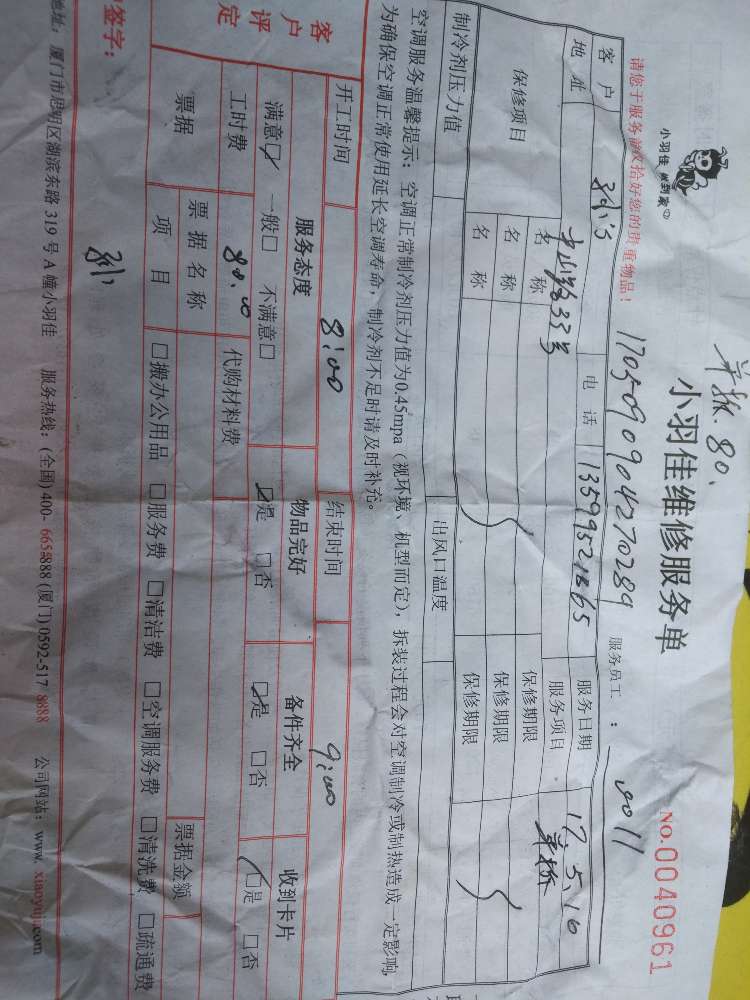 单拆.80.
小羽佳 做到家
小羽佳维修服务单
NO.0040961
1705090904270289
服务员工：
9011
请您于服务前收拾好您的贵重物品！
客户
电话 13599521365
服务日期 17.5.10
地址 33号
服务项目 单拆
保修项目 名称 保修期限
名称 保修期限
名称 保修期限
制冷剂压力值 出风口温度
空调服务温馨提示：空调正常制冷剂压力值为0.45mpa（视环境、机型而定），拆装过程会对空调制冷或制热造成一定影响，
为确保空调正常使用延长空调寿命，制冷剂不足时请及时补充。
开工时间 8:00 结束时间 9:00
客户评定
服务态度 物品完好 备件齐全 收到卡片
满意☑ 一般□ 不满意□ ☑是 □否 ☑是 □否 ☑是 □否
工时费 80.00 代购材料费
票据 票据名称 票据金额
项目 □搬办公用品 □服务费 □清洁费 □空调服务费 □清洗费 □疏通费
签字：
地址：厦门市思明区湖滨东路 319 号 A 幢小羽佳 服务热线：(全国) 400-6658888 (厦门) 0592-517 8888 公司网站：www.xiaoyujj.com